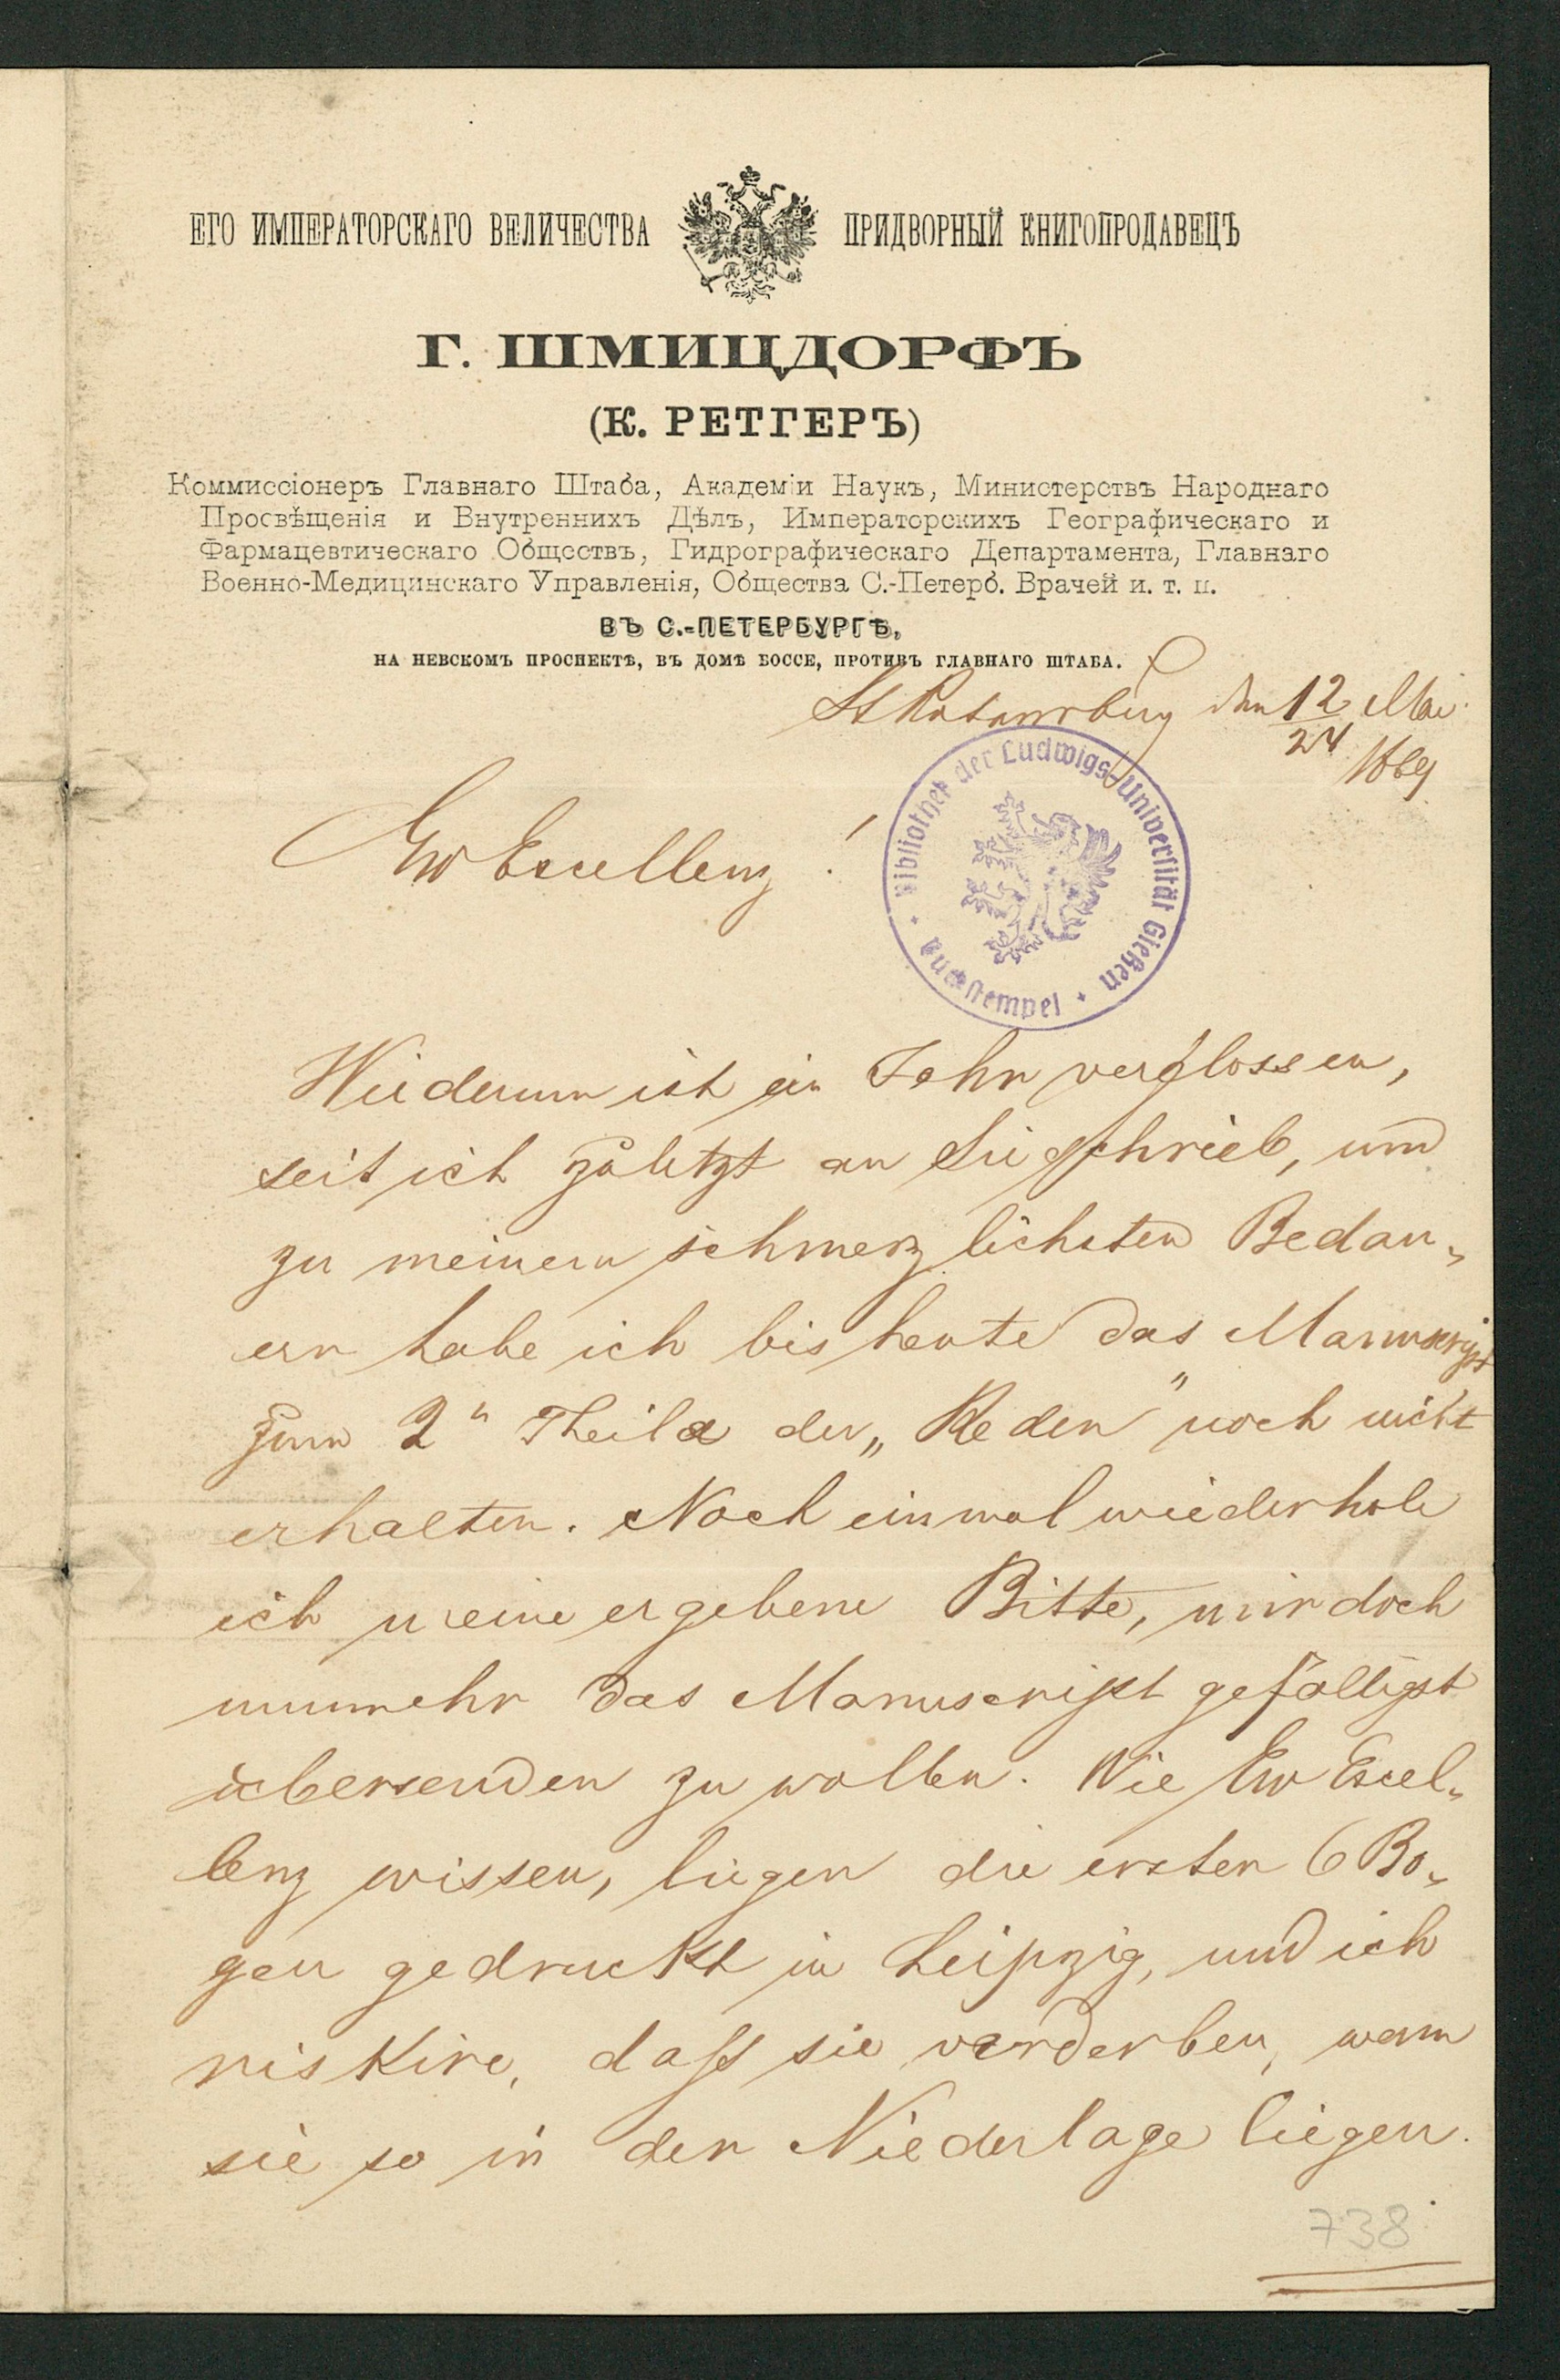 ЕГО ИМПЕРАТОРСКАГО ВЕЛИЧЕСТВА ПРИДВОРНЫЙ КНИГОПРОДАВЕЦЪ
Г. ШМИЦДОРФЪ
(К. РЕТГЕРЪ)
Коммиссіонеръ Главнаго Штаба, Академіи Наукъ, Министерствъ Народнаго
Просвѣщенія и Внутреннихъ Дѣлъ, Императорскихъ Географическаго и
Фармацевтическаго Обществъ, Гидрографическаго Департамента, Главнаго
Военно-Медицинскаго Управленія, Общества С.-Петерб. Врачей и. т. п.
ВЪ С.-ПЕТЕРБУРГѢ,
НА НЕВСКОМЪ ПРОСПЕКТѢ, ВЪ ДОМѢ БОССЕ, ПРОТИВЪ ГЛАВНАГО ШТАБА.
St Petersburg den 12/24 Mai
1869
Bibliothek der Ludwigs-Universität Gießen
Buchstempel
Ew Excellenz!
Wiederum ist ein Jahr verflossen,
seit ich zuletzt an Sie schrieb, und
zu meinem schmerzlichsten Bedau-
ern habe ich bis heute das Manuscript
zum 2n Theile der „Reden" noch nicht
erhalten. Noch einmal wiederhole
ich meine ergebene Bitte, mir doch
nunmehr das Manuscript gefälligst
übersenden zu wollen. Wie Ew Excel-
lenz wissen, liegen die ersten 6 Bo-
gen gedruckt in Leipzig, und ich
riskire, dass sie verderben, wenn
sie so in der Niederlage liegen.
738